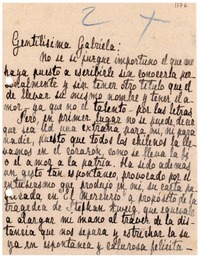 1176
2
Gentilísima Gabriela:
No se si juzgue importuno el que me
haya puesto a escribirle sin conocerla per-
sonalmente y sin tener otro título que el
de llevar su mismo nombre y tener el a-
mor - ya que no el talento - por las letras
Pero, en primer lugar no se puede decir
que sea Ud una extraña para mí, ni para
nadie, puesto que todos los chilenos la lle-
vamos en el corazón, como se lleva la fé
o el amor a la patria. Ha sido además
un gesto tan espontáneo, provocado por el
entusiasmo que produjo en mi su carta pu-
blicada en El Mercurio a propósito de la
tragedia de Stephan Zweig, que equivale
a alargar mi mano al través de la dis-
tancia que nos separa y estrechar la su-
ya en espontánea y calurosa felicita-